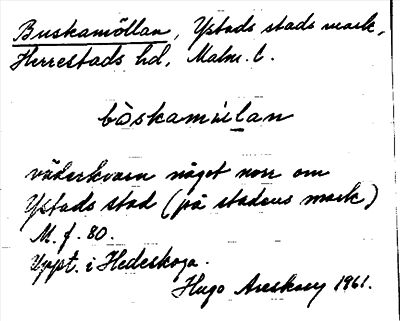 Buskamöllan, Ystads stads mark,
Herrestads hd, Malm. l.
bòskamùlan
väderkvarn något norr om
Ystads stad (på stadens mark)
M. f. 80.
Uppt. i Hedeskoga.
Hugo Areskoug 1961.